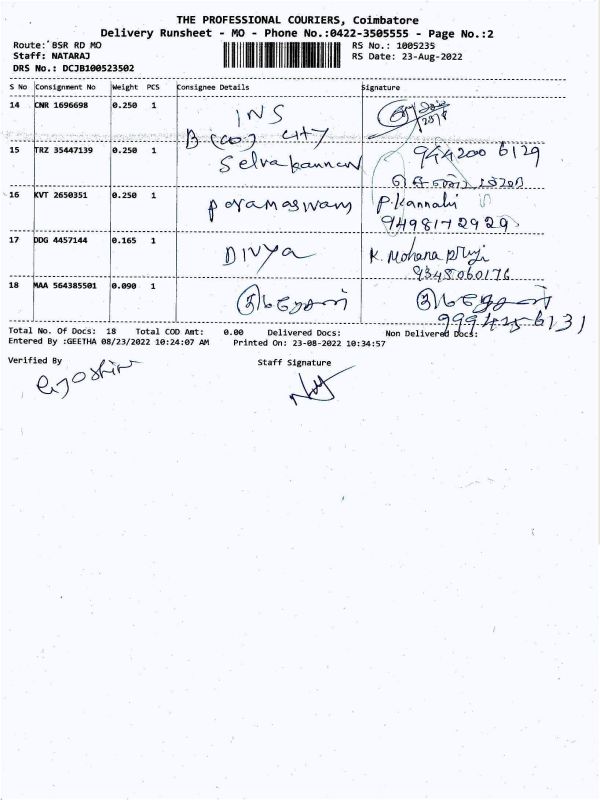 THE PROFESSIONAL COURIERS, Coimbatore
Delivery Runsheet - MO - Phone No.:0422-3505555 - Page No.:2
Route: BSR RD MO RS No.: 1005235
Staff: NATARAJ RS Date: 23-Aug-2022
DRS No.: DCJB100523502
S No Consignment No Weight PCS Consignee Details Signature
14 CNR 1696698 0.250 1 INS
B (CO) CITY
15 TRZ 35447139 0.250 1 Selvakannan 944200 6129
16 KVT 2650351 0.250 1 Paramaswam P. Kannahi
9498172929
17 DDG 4457144 0.165 1 DIVYA K. Mohana Priji
9345060176
18 MAA 564385501 0.090 1
9994256131
Total No. Of Docs: 18 Total COD Amt: 0.00 Delivered Docs: Non Delivered Docs:
Entered By :GEETHA 08/23/2022 10:24:07 AM Printed On: 23-08-2022 10:34:57
Verified By Staff Signature